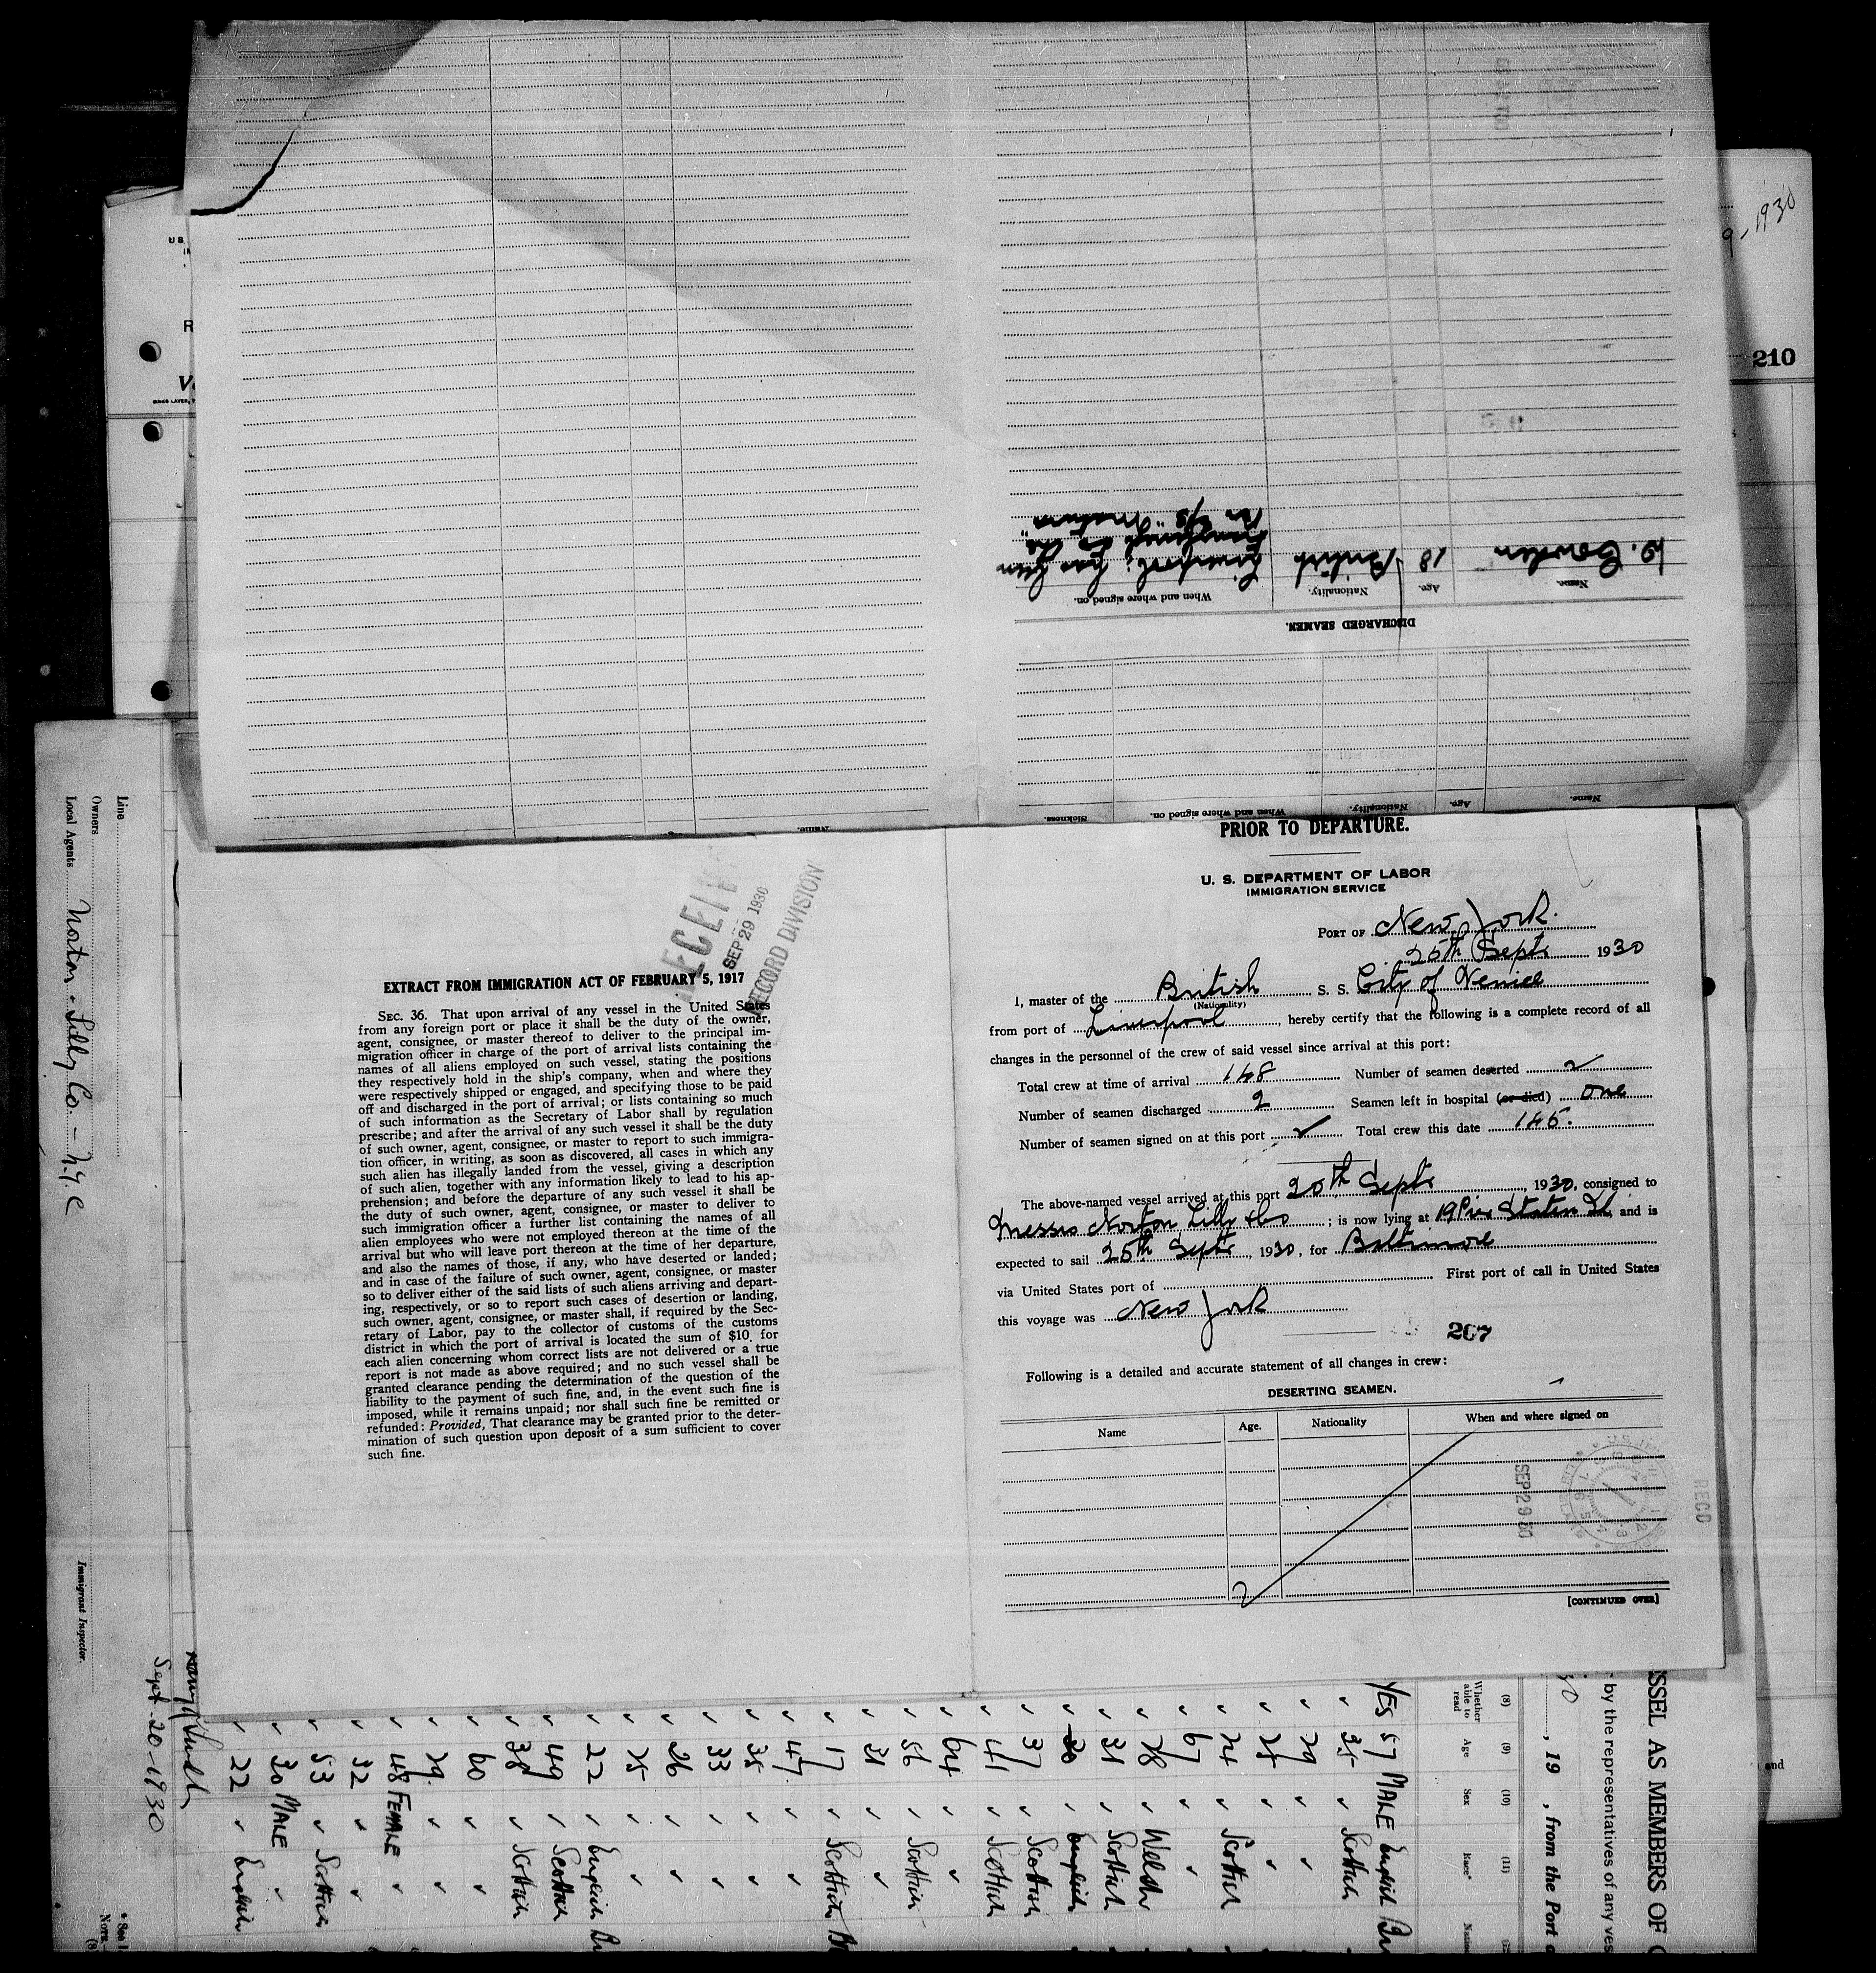 1930
210
DISCHARGED SEAMEN.
Name. Age. Nationality. When and where signed on.
18 British Liverpool; has been
transferred to the
Name. Age. Nationality. When and where signed on. Sickness.
Line
Owners
Local Agents Norton Lilly Co - N.Y.C
Immigrant Inspector.
SEP 29 1930
RECORD DIVISION
EXTRACT FROM IMMIGRATION ACT OF FEBRUARY 5, 1917
SEC. 36. That upon arrival of any vessel in the United States
from any foreign port or place it shall be the duty of the owner,
agent, consignee, or master thereof to deliver to the principal im-
migration officer in charge of the port of arrival lists containing the
names of all aliens employed on such vessel, stating the positions
they respectively hold in the ship's company, when and where they
were respectively shipped or engaged, and specifying those to be paid
off and discharged in the port of arrival; or lists containing so much
of such information as the Secretary of Labor shall by regulation
prescribe; and after the arrival of any such vessel it shall be the duty
of such owner, agent, consignee, or master to report to such immigra-
tion officer, in writing, as soon as discovered, all cases in which any
such alien has illegally landed from the vessel, giving a description
of such alien, together with any information likely to lead to his ap-
prehension; and before the departure of any such vessel it shall be
the duty of such owner, agent, consignee, or master to deliver to
such immigration officer a further list containing the names of all
alien employees who were not employed thereon at the time of the
arrival but who will leave port thereon at the time of her departure,
and also the names of those, if any, who have deserted or landed;
and in case of the failure of such owner, agent, consignee, or master
so to deliver either of the said lists of such aliens arriving and depart-
ing, respectively, or so to report such cases of desertion or landing,
such owner, agent, consignee, or master shall, if required by the Sec-
retary of Labor, pay to the collector of customs of the customs
district in which the port of arrival is located the sum of $10 for
each alien concerning whom correct lists are not delivered or a true
report is not made as above required; and no such vessel shall be
granted clearance pending the determination of the question of the
liability to the payment of such fine, and, in the event such fine is
imposed, while it remains unpaid; nor shall such fine be remitted or
refunded: Provided, That clearance may be granted prior to the deter-
mination of such question upon deposit of a sum sufficient to cover
such fine.
PRIOR TO DEPARTURE.
U. S. DEPARTMENT OF LABOR
IMMIGRATION SERVICE
PORT OF New York.
25th Sept 1930
I, master of the British S. S. City of Venice
(Nationality)
from port of Liverpool, hereby certify that the following is a complete record of all
changes in the personnel of the crew of said vessel since arrival at this port:
Total crew at time of arrival 148 Number of seamen deserted
Number of seamen discharged 2 Seamen left in hospital (or died) one
Number of seamen signed on at this port Total crew this date 145.
The above-named vessel arrived at this port 20th Sept 1930, consigned to
Messrs Norton Lilly & Co; is now lying at 19 Pier Staten Id, and is
expected to sail 25th Sept 1930, for Baltimore
via United States port of First port of call in United States
this voyage was New York
267
Following is a detailed and accurate statement of all changes in crew:
DESERTING SEAMEN.
Name Age. Nationality When and where signed on
SEP 29 30
RECD
[CONTINUED OVER]
SSEL AS MEMBERS OF
by the representatives of any ves
, 19 , from the Port
(8) (9) (10) (11)
Whether able to read Age Sex Race*
YES 57 MALE English
35 Scottish
29
25
24 Scottish
67
28 Welsh
31 Scottish
30 English
37 Scottish
41 Scottish
64
56 Scottish
31
17 Scottish
47
35
33
26
25
22 English
49 Scottish
38 Scottish
60
29
48 FEMALE
32
53 Scottish
30 MALE
22 English
Sept-20-1930